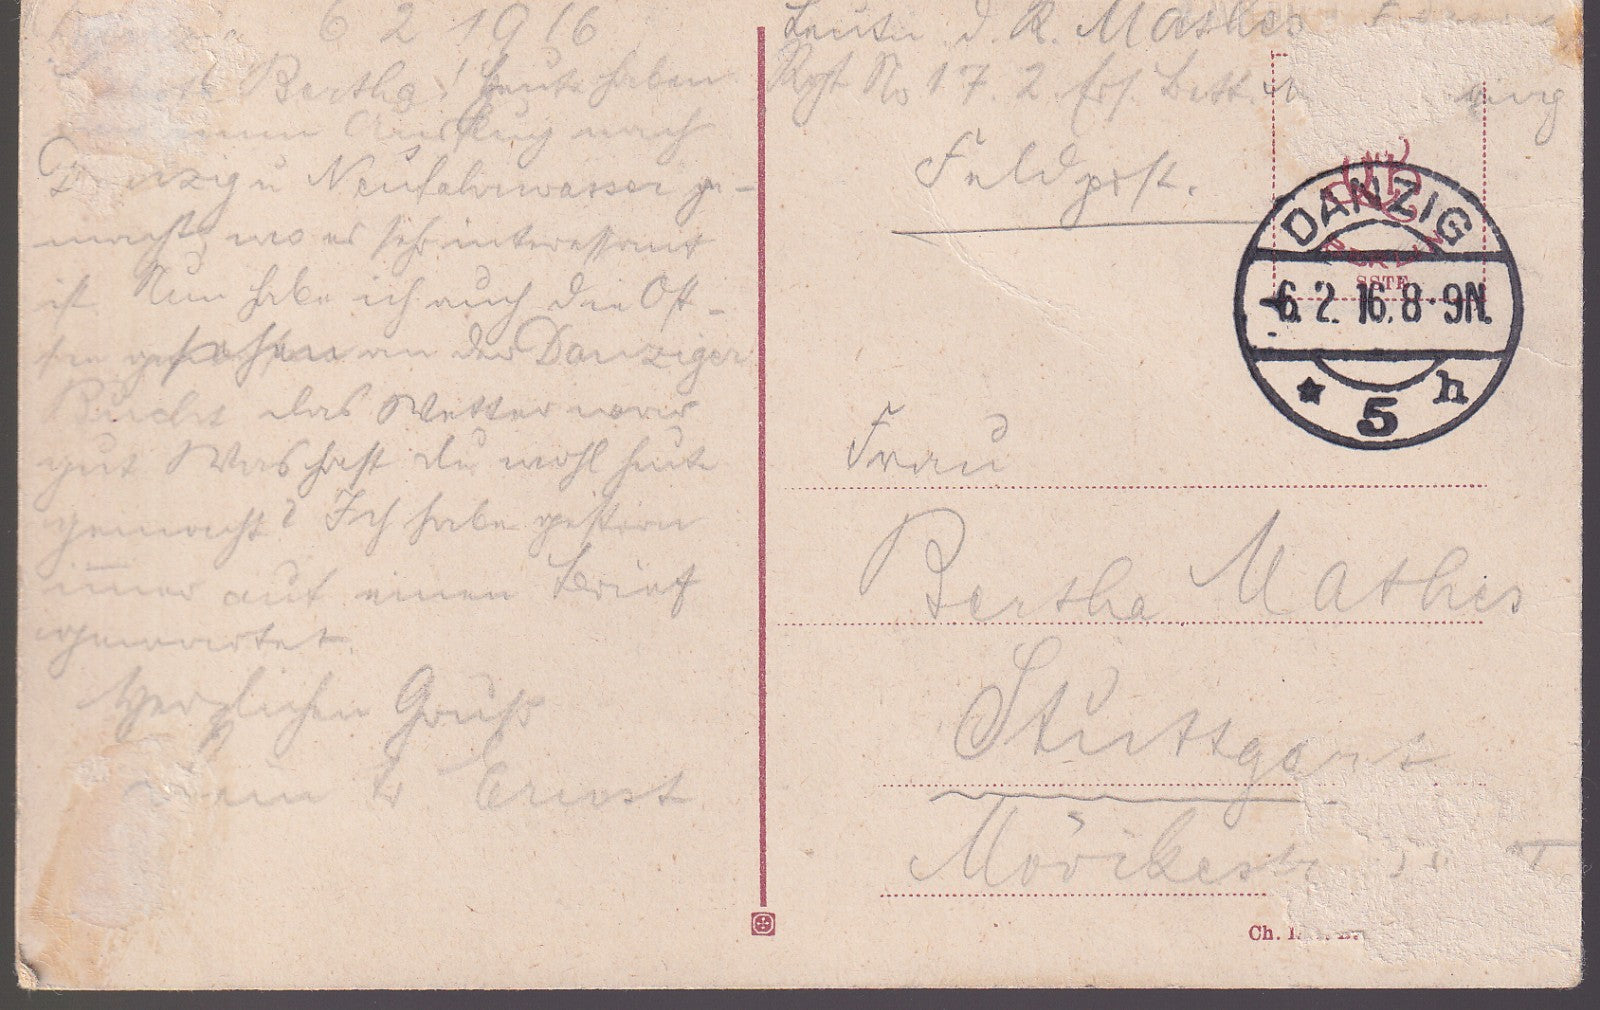 6 2 1916
Bertha! Heute haben
einen Ausflug nach
Danzig u Neufahrwasser ge-
macht, wo es sehr interessant
ist. Nun habe ich auch die Ost-
see gesehen an der Danziger
Bucht das Wetter war
gut Was hast du wohl heute
gemacht? Ich habe gestern
immer auf einen Brief
gewartet.
Herzlichen Gruß
Dein lb Ernst
Leutn d. R. Mathes
Rgt No 17. 2. Ers. Batt.
Feldpost.
DANZIG
6. 2. 16. 8-9N.
* 5 h
BERLIN
Frau
Bertha Mathes
Stuttgart
Mörikestr
Ch.